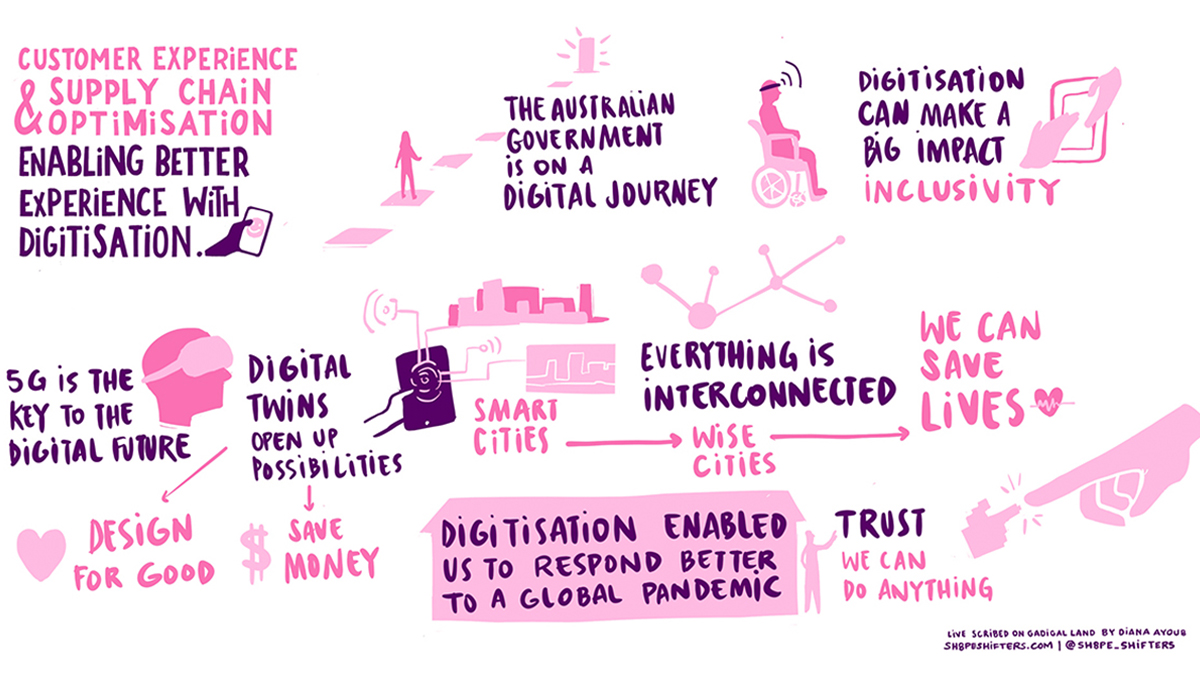 CUSTOMER EXPERIENCE
& SUPPLY CHAIN
OPTIMISATION
ENABLING BETTER
EXPERIENCE WITH
DIGITISATION.
THE AUSTRALIAN
GOVERNMENT
IS ON A
DIGITAL JOURNEY
DIGITISATION
CAN MAKE A
BIG IMPACT
INCLUSIVITY
5G IS THE
KEY TO THE
DIGITAL FUTURE
DIGITAL
TWINS
OPEN UP
POSSIBILITIES
DESIGN
FOR GOOD
$ SAVE
MONEY
SMART
CITIES
EVERYTHING IS
INTERCONNECTED
WISE
CITIES
WE CAN
SAVE
LIVES
DIGITISATION ENABLED
US TO RESPOND BETTER
TO A GLOBAL PANDEMIC
TRUST
WE CAN
DO ANYTHING
LIVE SCRIBED ON GADIGAL LAND BY DIANA AYOUB
SH8PESHIFTERS.COM | @SH8PE_SHIFTERS